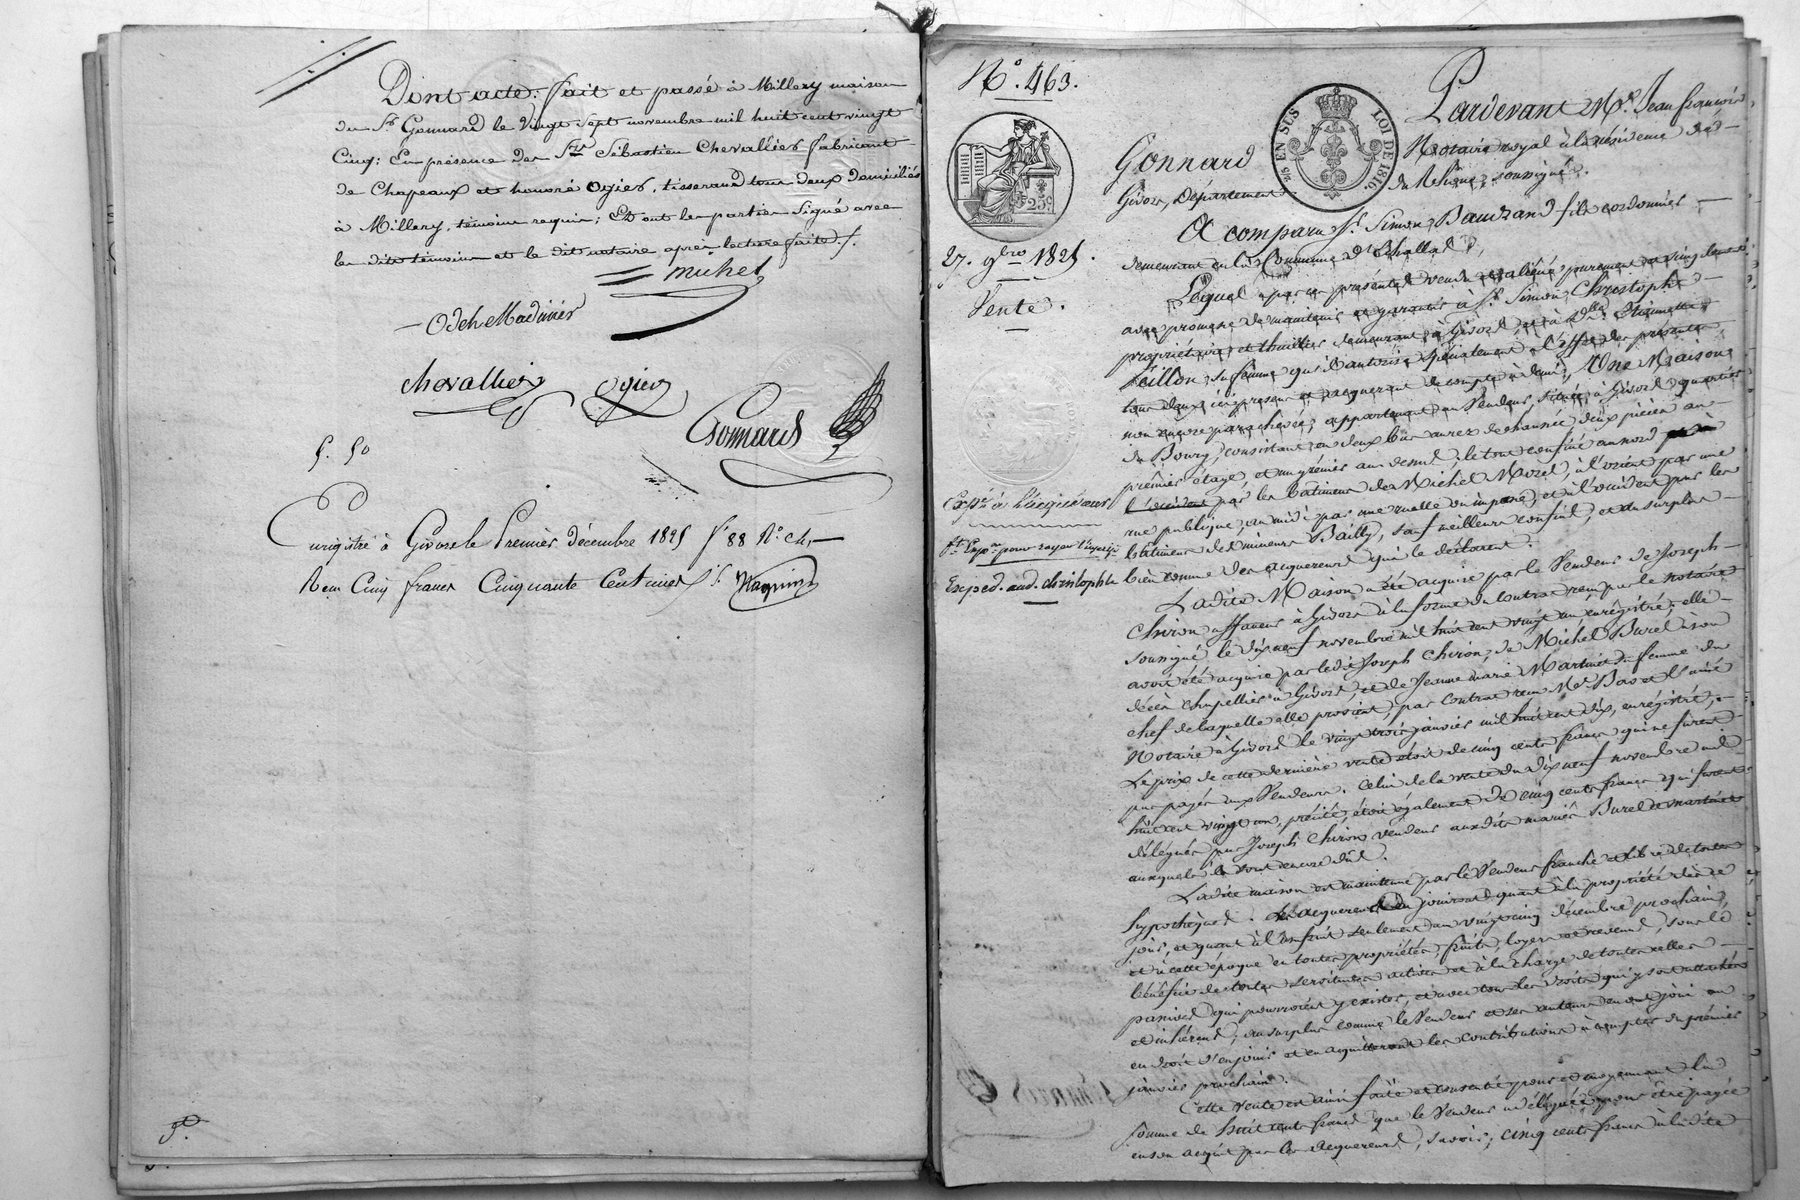 Dont acte; fait et passé à Millery maison
du Sr Gonnard le Vingt Sept novembre mil huit cent vingt
Cinq; En présence des Srs Sébastien Chevallier fabricant
de Chapeaux et honoré Ogier, tisserand tous deux domiciliés
à Millery, témoins requis; Et ont les parties Signé avec
les dits témoins et le dit notaire après lecture faite ./.
michel
Odet Madinier
chevallier
Ogier
Gonnard
5. 50
Enregistré à Givors le Premier décembre 1825 fo 88 No ch,
Reçu Cinq francs Cinquante Centimes
No. 463.
25 EN SUS LOI DE 1816.
25c
27. 9bre 1825.
Vente.
Exped. aud. christophle
Pardevant Me. Jean françois
Gonnard Notaire royal à la résidence de
Givors, Département du Rhône, soussigné.
A comparu Sr. Simon Baudrand fils cordonnier
demeurant en la Commune d'Echallas,
Lequel par ces présentes vend et aliène purement et simplement
avec promesse de maintenir et garantir à Sr. Simon Christophle
propriétaire et thuillier demeurant à Givors, et à dlle.
sa femme qu'il autorise spécialement à l'effet des présentes,
tous deux ici présens et acquerant de compte à demi; Une Maison
non encore parachevée, appartenant au Vendeur, située à Givors quartier
du Bourg, consistant en deux bas au rez de chaussée deux pièces au
premier étage, et un grenier au dessus; le tout confiné au nord
par les bâtimens de Michel Morel, à l'orient par une
rue publique, au midi par une ruelle ou impasse, et à l'occident par les
bâtimens des mineurs Bailly, sauf meilleurs confins, et au surplus
bien connue des acquereurs qui le déclarent.
Ladite Maison a été acquise par le Vendeur de Joseph
Chiron affaneur à Givors à la forme du Contrat reçu par le notaire
soussigné le dix neuf novembre mil huit cent vingt un enrégistré; elle
avoit été acquise par ledit Joseph Chiron, de Michel Burel
chapellier à Givors, et de Jeanne marie Martinet sa femme du
chef de laquelle elle provient, par contrat reçu Me
Notaire à Givors le vingt trois janvier mil huit cent dix, enrégistré,
Le prix de cette dernière vente étoit de cinq cents francs qui ne furent
pas payés aux Vendeurs. Celui de la vente du dix neuf novembre mil
huit cent vingt un, précité, étoit également de cinq cents francs qui furent
délégués par Joseph Chiron vendeur auxdits mariés Burel et martinet
auxquels ils sont encore dûs.
Ladite maison est maintenue par le Vendeur franche et libre de toutes
hypothèques. Les acquereurs en jouiront quant à la propriété dès ce
jour, et quant à l'usufruit seulement au vingt cinq décembre prochain,
et à cette époque en toutes propriétés, fruits, loyers et revenus, sous le
bénéfice de toutes servitudes actives et à la charge de toutes celles
passives qui pourroient y exister, et avec tous les droits qui y sont attachés
et inhérens, au surplus comme le Vendeur et ses auteurs en ont joui ou
en droit d'en jouir et en acquitteront les contributions à compter du premier
janvier prochain.
Cette vente est ainsi faite et consentie pour et moyennant la
somme de huit cent francs que le Vendeur a déléguée pour être payée
en son acquit par les acquereurs, savoir; cinq cents francs à ladite